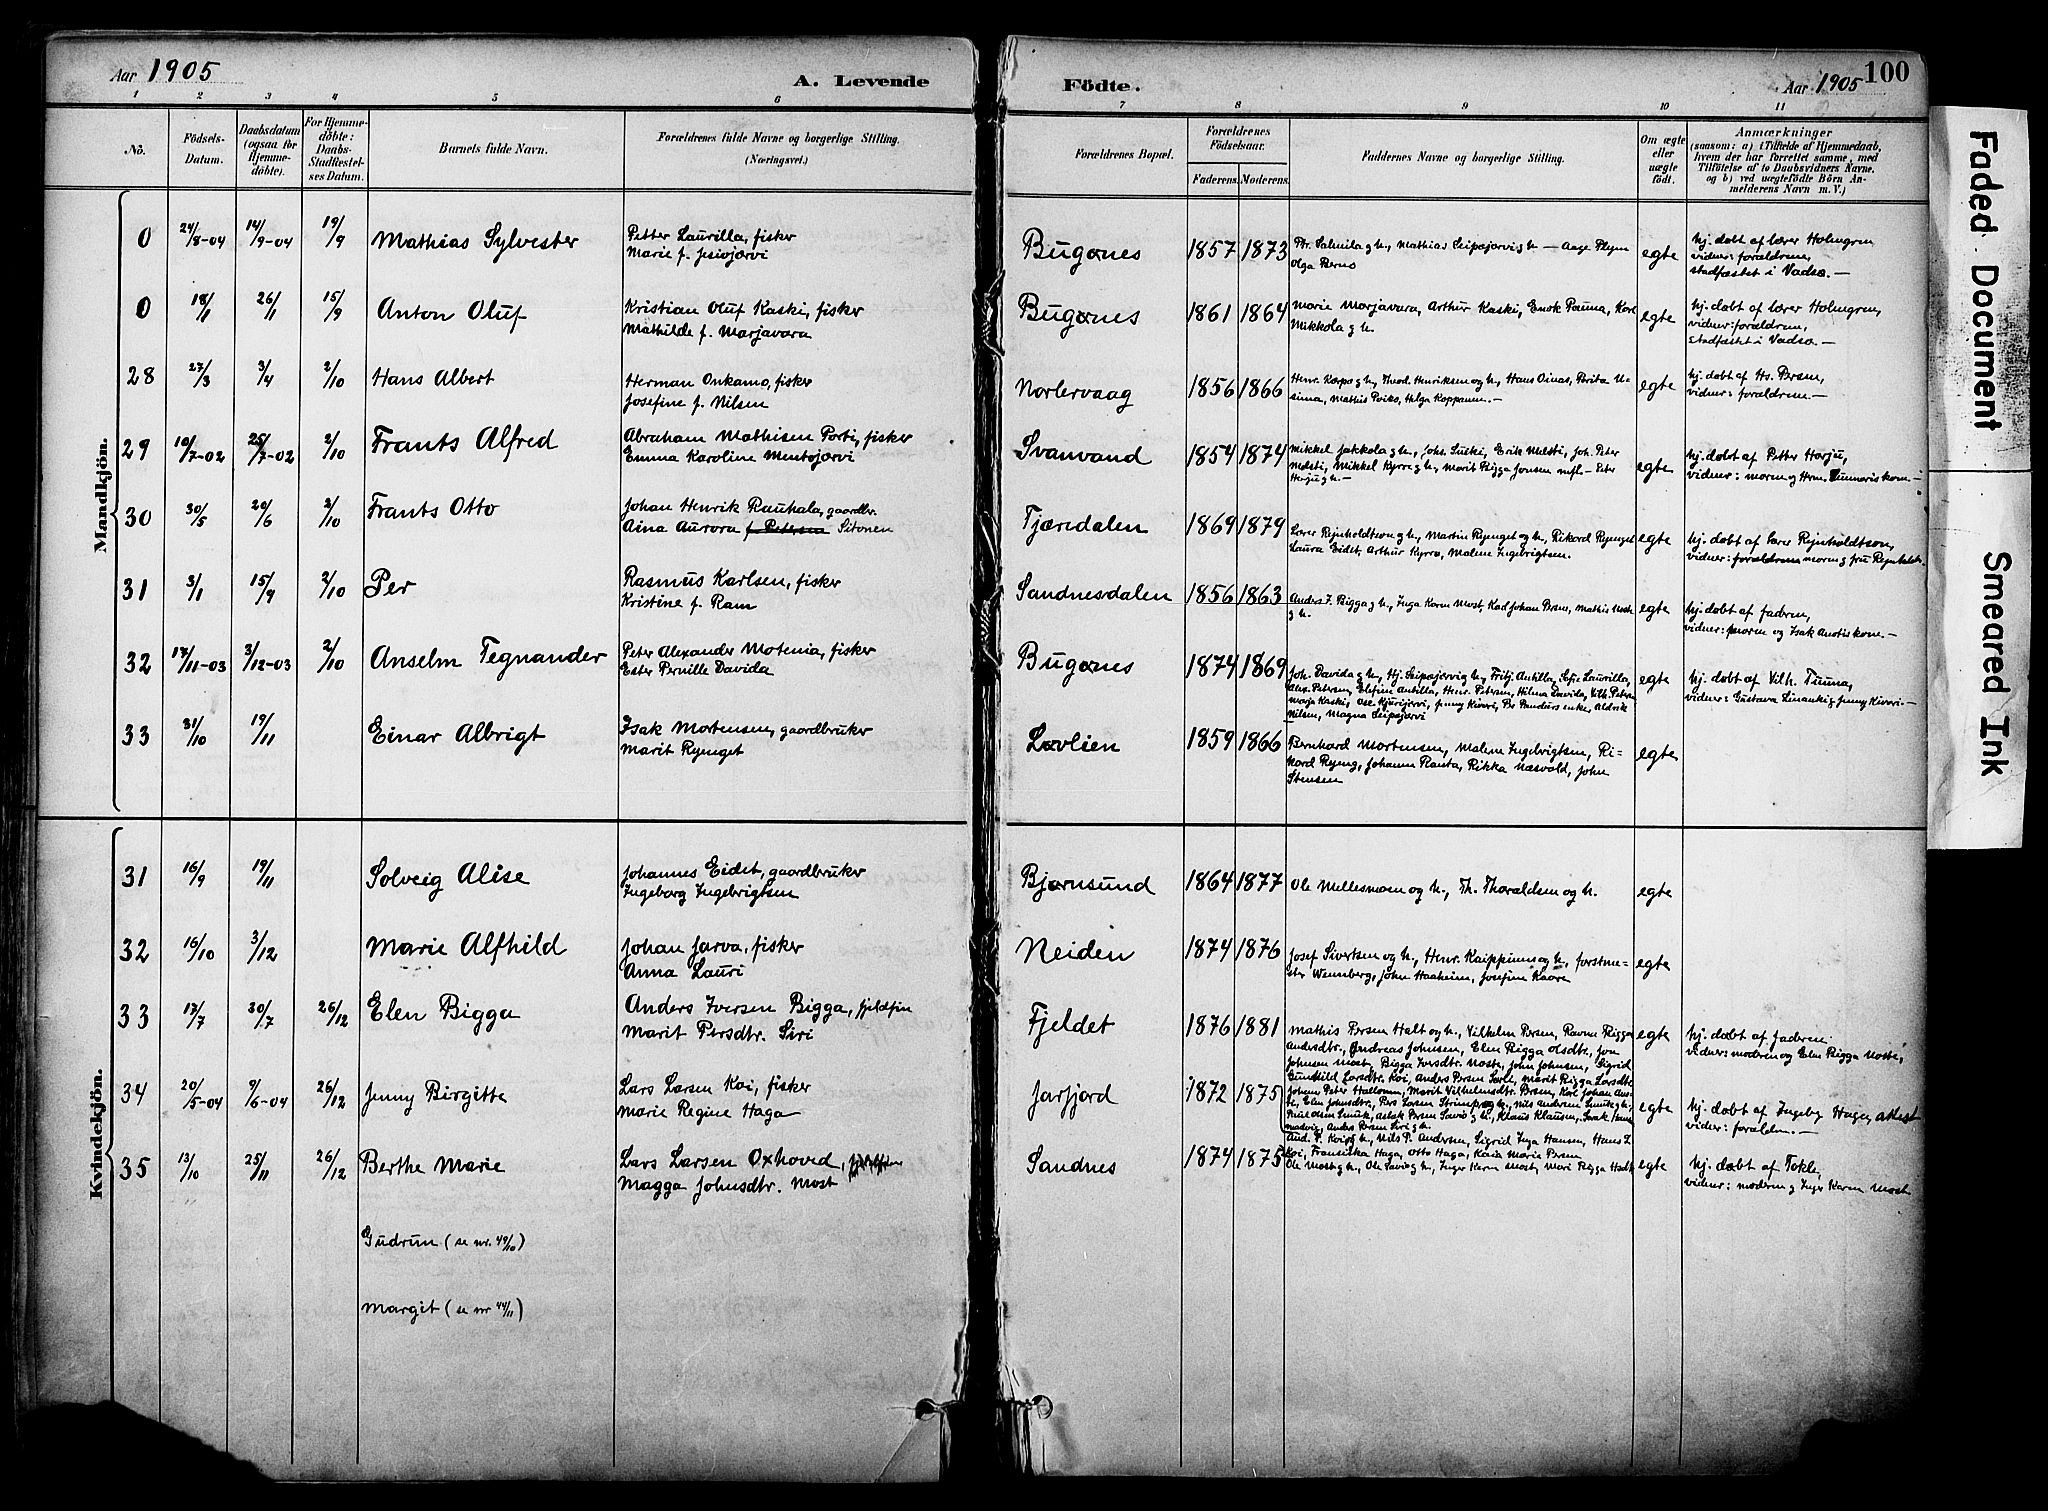 Aar 1905
A. Levende
Födte.
Aar 1905
100
1 2 3 4 5 6 7 8 9 10 11
No.
Födsels-
Datum.
Daabsdatum
(ogsaa for
Hjemme-
döbte).
For Hjemme-
döbte:
Daabs-
Stadfæstel-
ses Datum.
Barnets fulde Navn.
Forældrenes fulde Navne og borgerlige Stilling.
(Næringsvei.)
Forældrenes Bopæl.
Forældrenes
Födselsaar.
Faderens. Moderens.
Faddernes Navne og borgerlige Stilling.
Om ægte
eller
uægte
födt.
Anmærkninger
(saasom: a) i Tilfælde af Hjemmedaab,
hvem der har forrettet samme, med
Tilföielse af to Daabsvidners Navne.
og b) ved uægtefödte Börn An-
melderens Navn m. V.)
Mandkjön.
0 24/8-04 14/9-04 19/9 Mathias Sylvester
Petter Laurilla, fisker
Marie f. Jesiojærvi
Bugønes 1857 1873
Olga Berno
egte
hj. døbt af lærer Holmgren
vidner: forældrene,
stadfæstet i Vadsø. —
0 18/1 26/1 15/9 Anton Oluf
Kristian Oluf Kaski, fisker
Mathilde f. Marjavara
Bugønes 1861 1864
Marie Marjavara, Arthur Kaski, Enok Pauna, Karl
Mikkola g h.
egte
hj. døbt af lærer Holmgren,
vidner: forældrene,
stadfæstet i Vadsø. —
28 27/3 3/4 2/10 Hans Albert
Herman Onkamo, fisker
Josefine f. Nilsen
Norlervaag 1856 1866
Henr. Karpo g h., Theod. Henriksen og h., Hans Oinas, Brita U-
sima, Mathis Poiko, Helga Koppanen. —
egte
hj. døbt af Hs. Persen,
vidner: forældrene. —
29 10/7-02 25/7-02 2/10 Frants Alfred
Abraham Mathisen Porti, fisker
Emma Karoline Mentojærvi
Svanvand 1854 1874
Mikkel Jakkola g h., Johs. Suiki, Erik Melsti, Joh. Peter
Melsti, Mikkel Kyrrø g h., Marit Rigga Jonsen mfl. — Peter
Harju g h. —
egte
hj. døbt af Petter Harju,
30 30/5 20/6 2/10 Frants Otto
Johan Henrik Rauhala, gaardbr.
Aina Aurora f. Petersen Sitonen
Tjæredalen 1869 1879
Lærer Reinholdtsen og h., Martin Ryenget og h., Rikard Ryenget
Laura Eidet, Arthur Kyrrø, Malene Ingebrigtsen.
egte
hj. døbt af lærer Reinholdtson,
vidner: forældrene moren g fru Reinholdt.
31 3/1 15/9 2/10 Per
Rasmus Karlsen, fisker
Kristine f. Ram
Sandnesdalen 1856 1863
Anders I. Bigga g h., Inga Karen Most, Karl Johan Persen, Mathis Most
g h.
egte
hj. døbt af faderen,
vidner: moren og Isak Anotis kone. —
32 17/11-03 3/12-03 2/10 Anselm Tegnander
Peter Alexander Motenia, fisker
Ester Pernille Davida
Bugønes 1874 1869
Joh. Davida g h., Hj. Seipejærvi g h., Fritj. Antilla, Sofie Laurilla,
Alex. Petersen, Elefine Antilla, Henr. Petersen, Hilma Davida, Vilh. Peters
Marja Kaski,
Nilsen, Magna Seipejærvi
egte
hj. døbt af Vilh. Tuuna,
vidner: Gustava Linanki g Jenny Kiveri. —
33 31/10 19/11 Einar Albrigt
Isak Mortensen, gaardbruker
Marit Ryenget
Løvlien 1859 1866
Bernhard Mortensen, Malene Ingebrigtsen, Ri-
kard Ryeng, Johanne Ranta, Rikka Næsvold, John
Stensen
egte
Kvindekjön.
31 16/9 19/11 Solveig Alise
Johannes Eidet, gaardbruker
Ingeborg Ingebrigtsen
Bjørnsund 1864 1877
Ole Mellesmoen og h., Th. Thoraldsen og h.
egte
32 16/10 3/12 Marie Alfhild
Johan Jarva, fisker
Anna Lauri
Neiden 1874 1876
Josef Sivertsen og h., Henr. Kaippinen og h., forstme-
ster Wennberg, John Haaheim, Josefine Kaare
egte
33 17/7 30/7 26/12 Elen Bigga
Anders Iversen Bigga, fjeldfin
Marit Persdtr. Siri
Fjeldet 1876 1881
Mathis Persen Halt og h., Vilhelm Persen, Ravna Rigga
Andersdtr., Andreas Johnsen, Elen Rigga Olsdtr., Jon
Johnsen Most, Bigga Iversdtr. Moste, John Johnsen, Sigrid
Gunhild Larsdtr. Koi, Anders Persen Sarle, Marit Rigga Larsdtr.
egte
hj. døbt af faderen
vidner: moderen og Elen Rigga Moste,
34 20/5-04 9/6-04 26/12 Jenny Birgitte
Lars Larsen Koi, fisker
Marie Regine Haga
Jarfjord 1872 1875
Johan Peter Hallonen, Marit Vilhelmsdtr. Persen, Karl Johan An-
And. P. Koip h., Nils P. Andersen, Sigrid Inga Hansen, Hans L.
Koi, Fransiska Haga, Otto Haga, Karia Marie Persen
egte
hj. døbt af Ingebg. Hagen, attest
vidner: forældr. —
35 13/10 25/11 26/12 Berthe Marie
Lars Larsen Oxhoved,
Magga Johnsdtr. Most
Sandnes 1874 1875
Ole Most g h., Ole Savio g h., Inger Karen Most, Mari Rigga Halt
egte
hj. døbt af Tokle,
vidner: moderen g Inger Karen Most
Gudrun (se nr. 49/10)
Margit (se nr 44/11)
Faded Document
Smeared Ink